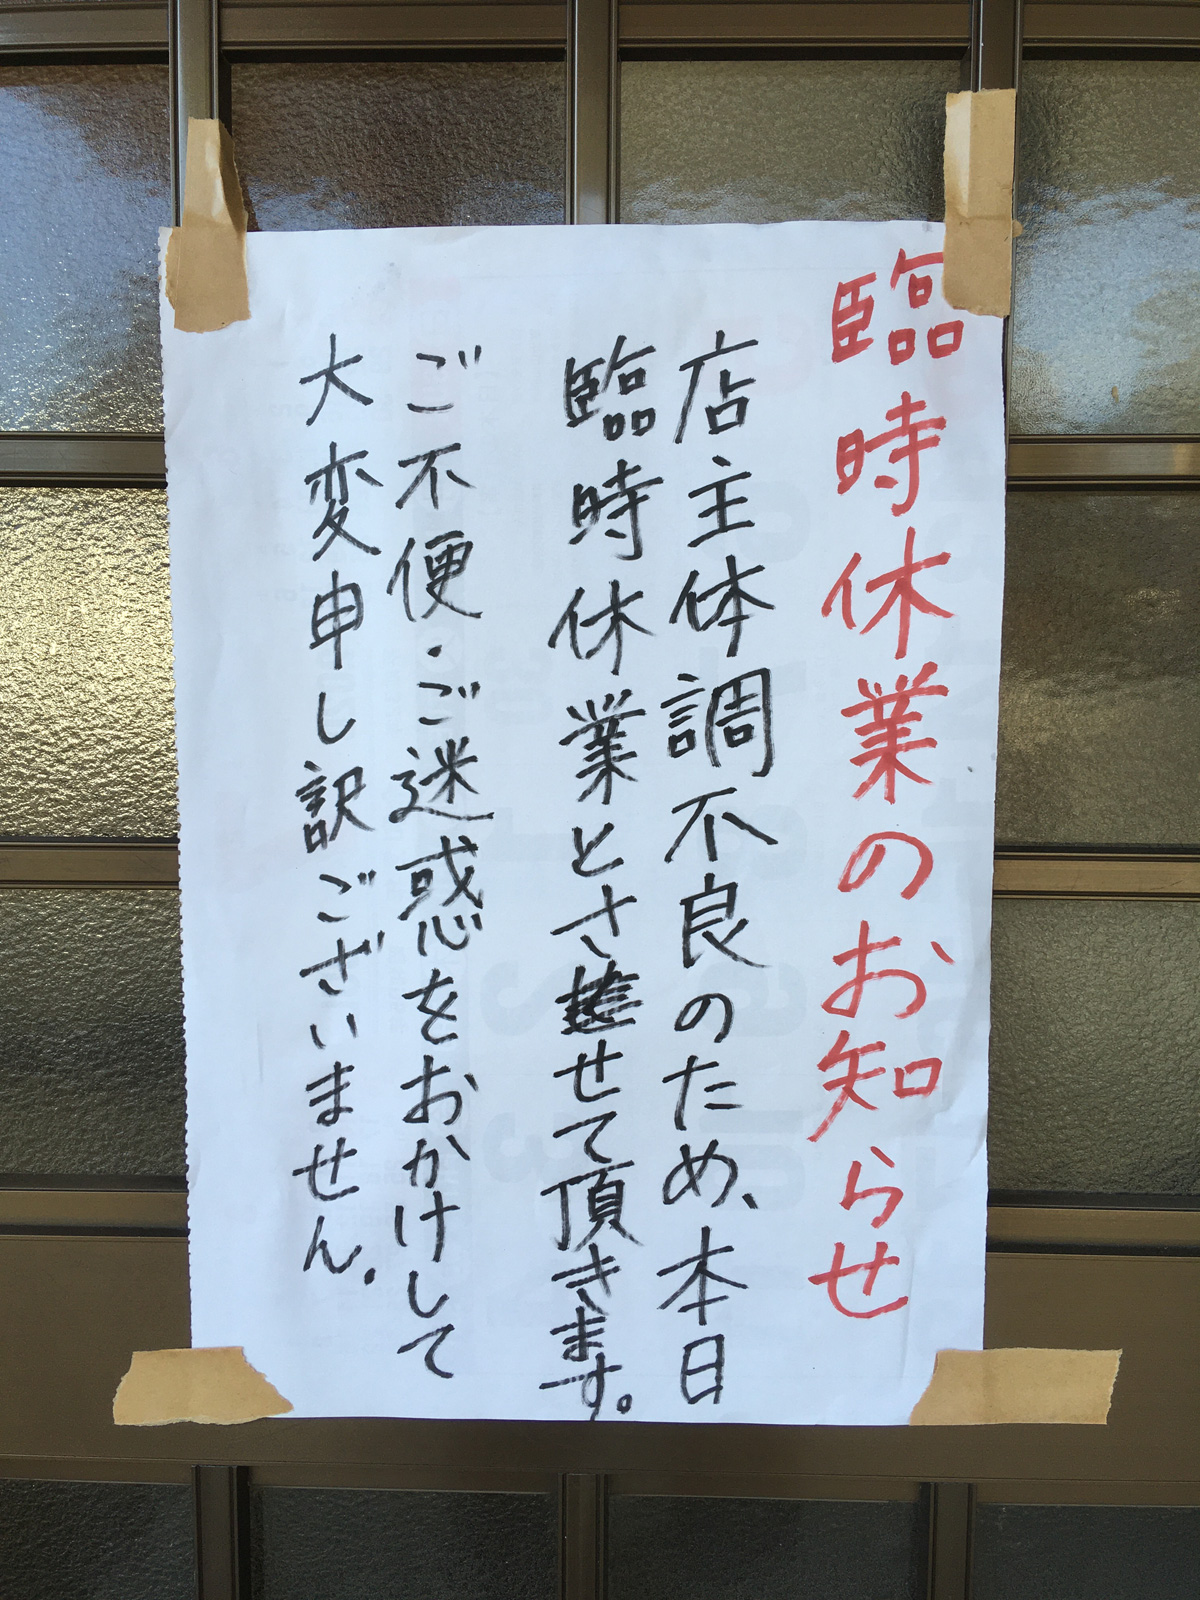 臨時休業のお知らせ
店主体調不良のため、本日
臨時休業とさせて頂きます。
ご不便・ご迷惑をおかけして
大変申し訳ございません。